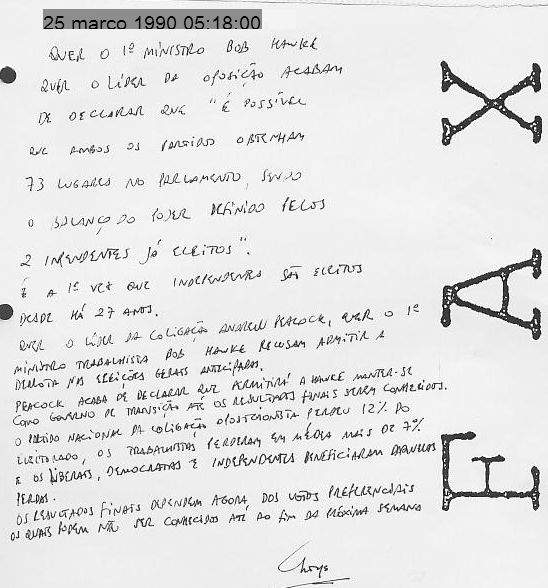 25 março 1990 05:18:00
QUER O 1º MINISTRO BOB HAWKE
QUER O LÍDER DA OPOSIÇÃO ACABAM
DE DECLARAR QUE "É POSSÍVEL
QUE AMBOS OS PARTIDOS OBTENHAM
73 LUGARES NO PARLAMENTO, SENDO
O BALANÇO DO PODER DEFINIDO PELOS
2 INPENDENTES JÁ ELEITOS".
É A 1ª VEZ QUE INDEPENDENTES SÃO ELEITOS
DESDE HÁ 27 ANOS.
QUER O LÍDER DA COLIGAÇÃO ANDREW PEACOCK, QUER O 1º
MINISTRO TRABALHISTA BOB HAWKE RECUSAM ADMITIR A
DERROTA NAS ELEIÇÕES GERAIS ANTECIPADAS.
PEACOCK ACABA DE DECLARAR QUE PERMITIRÁ A HAWKE MANTER-SE
COMO GOVERNO DE TRANSIÇÃO ATÉ OS RESULTADOS FINAIS SEREM CONHECIDOS.
O PARTIDO NACIONAL DA COLIGAÇÃO OPOSICIONISTA PERDEU 12% DO
ELEITORADO, OS TRABALHISTAS PERDERAM EM MÉDIA MAIS DE 7%
E OS LIBERAIS, DEMOCRATAS E INDEPENDENTES BENEFICIARAM DAQUELAS
PERDAS.
OS RESULTADOS FINAIS DEPENDEM AGORA DOS VOTOS PREFERENCIAIS
OS QUAIS PODEM NÃO SER CONHECIDOS ATÉ AO FIM DA PRÓXIMA SEMANA
FAX